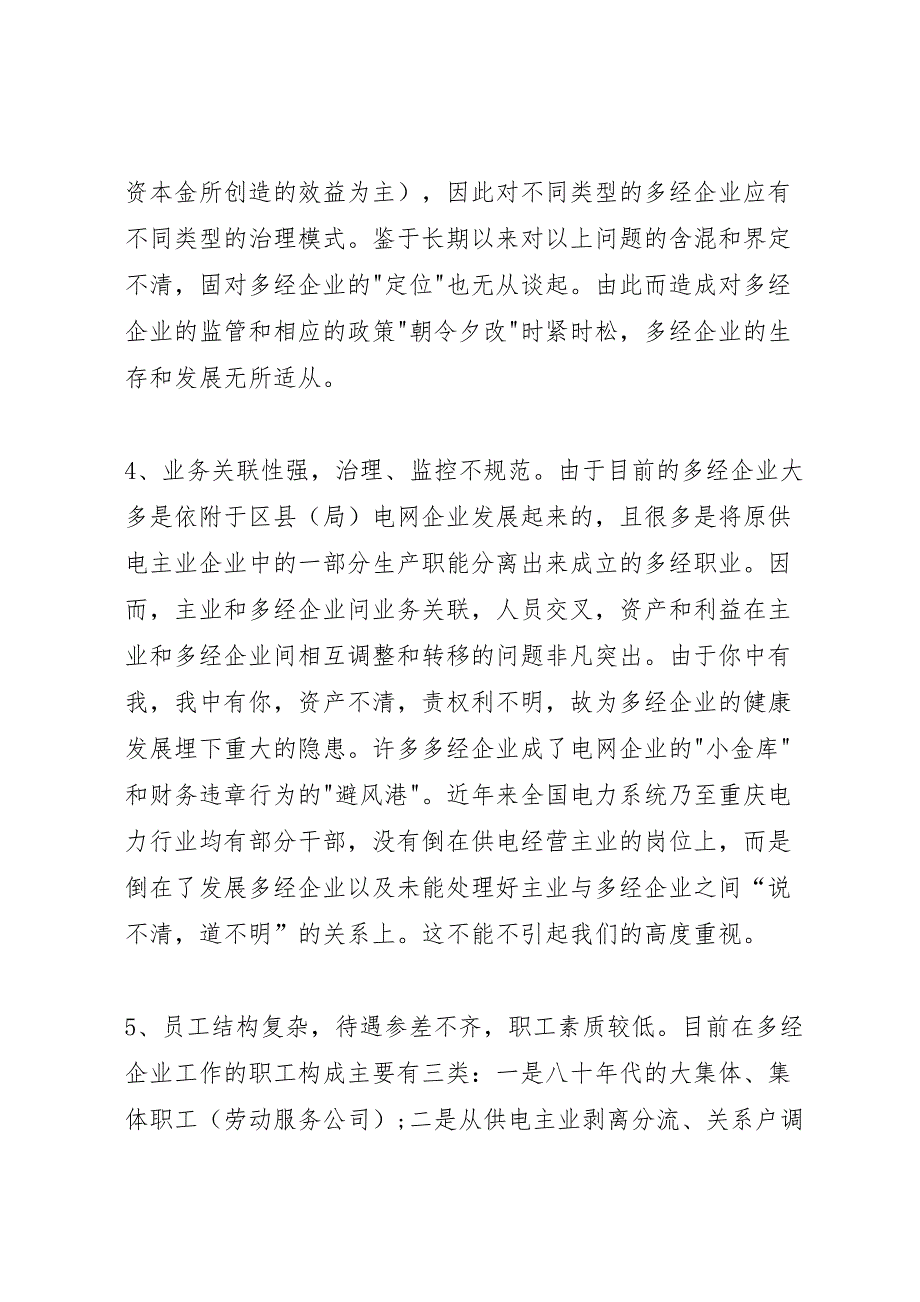 资本金所创造的效益为主），因此对不同类型的多经企业应有
不同类型的治理模式。鉴于长期以来对以上问题的含混和界定
不清，固对多经企业的"定位"也无从谈起。由此而造成对多经
企业的监管和相应的政策"朝令夕改"时紧时松，多经企业的生
存和发展无所适从。
4、业务关联性强，治理、监控不规范。由于目前的多经企业大
多是依附于区县（局）电网企业发展起来的，且很多是将原供
电主业企业中的一部分生产职能分离出来成立的多经职业。因
而，主业和多经企业问业务关联，人员交叉，资产和利益在主
业和多经企业间相互调整和转移的问题非凡突出。由于你中有
我，我中有你，资产不清，责权利不明，故为多经企业的健康
发展埋下重大的隐患。许多多经企业成了电网企业的"小金库"
和财务违章行为的"避风港"。近年来全国电力系统乃至重庆电
力行业均有部分干部，没有倒在供电经营主业的岗位上，而是
倒在了发展多经企业以及未能处理好主业与多经企业之间“说
不清，道不明”的关系上。这不能不引起我们的高度重视。
5、员工结构复杂，待遇参差不齐，职工素质较低。目前在多经
企业工作的职工构成主要有三类：一是八十年代的大集体、集
体职工（劳动服务公司）;二是从供电主业剥离分流、关系户调